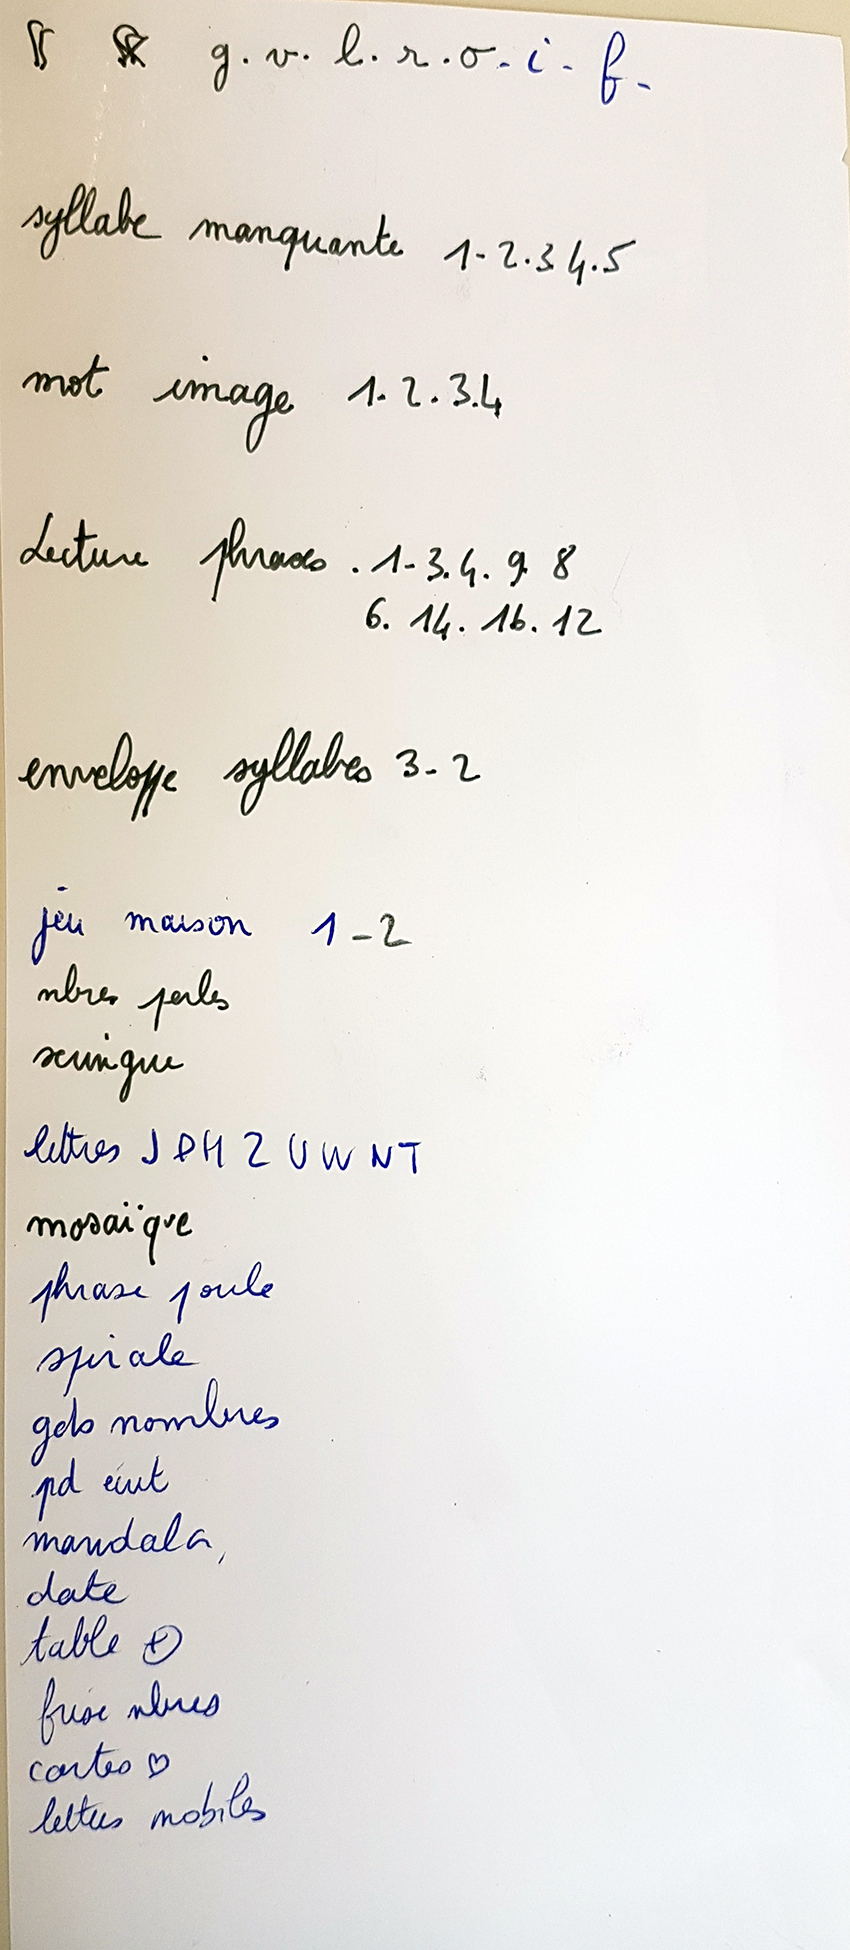 g. v. l. r. o. i. f.
syllabe manquante 1-2.3 4.5
mot image 1.2.3.4
Lecture phrases . 1-3.4. 9. 8
6. 14. 16. 12
enveloppe syllabes 3-2
jeu maison 1-2
nbres perles
seringue
lettres J P H Z U W N T
mosaïque
phrase poule
spirale
gds nombres
pd
mandala,
date
table +
frise nbres
cartes ♡
lettres mobiles